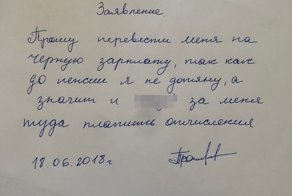 Заявление
Прошу перевести меня на
черную зарплату, так как
до пенсии я не дотяну, а
значит и за меня
туда платить отчисления
18.06.2018г